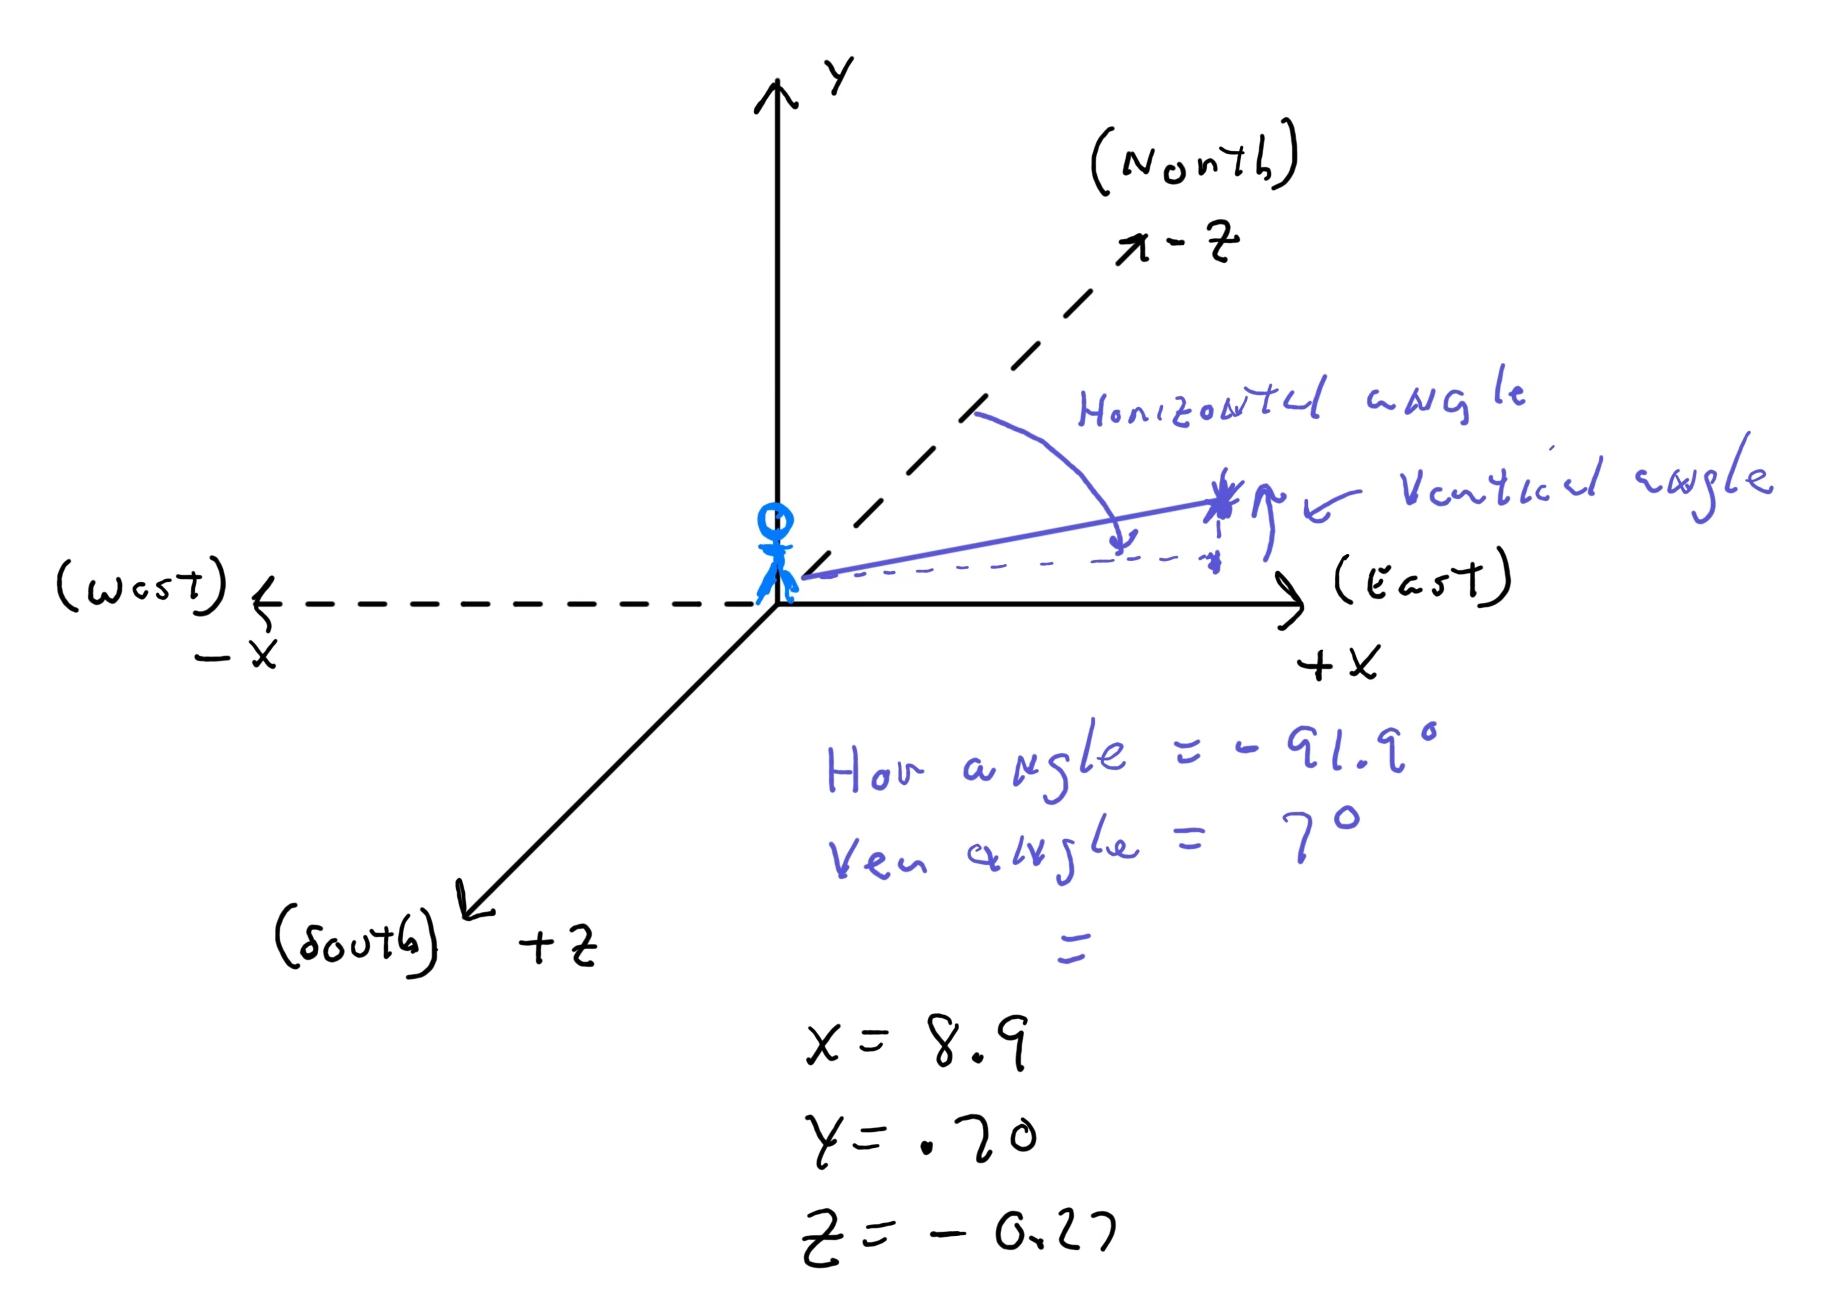 Y
(North)
- Z
Horizontal angle
Vertical angle
(West)
- X
(East)
+ X
Hor angle = - 91.9°
Ver angle = 7°
=
(South)
+ Z
X = 8.9
Y = .70
Z = - 0.27